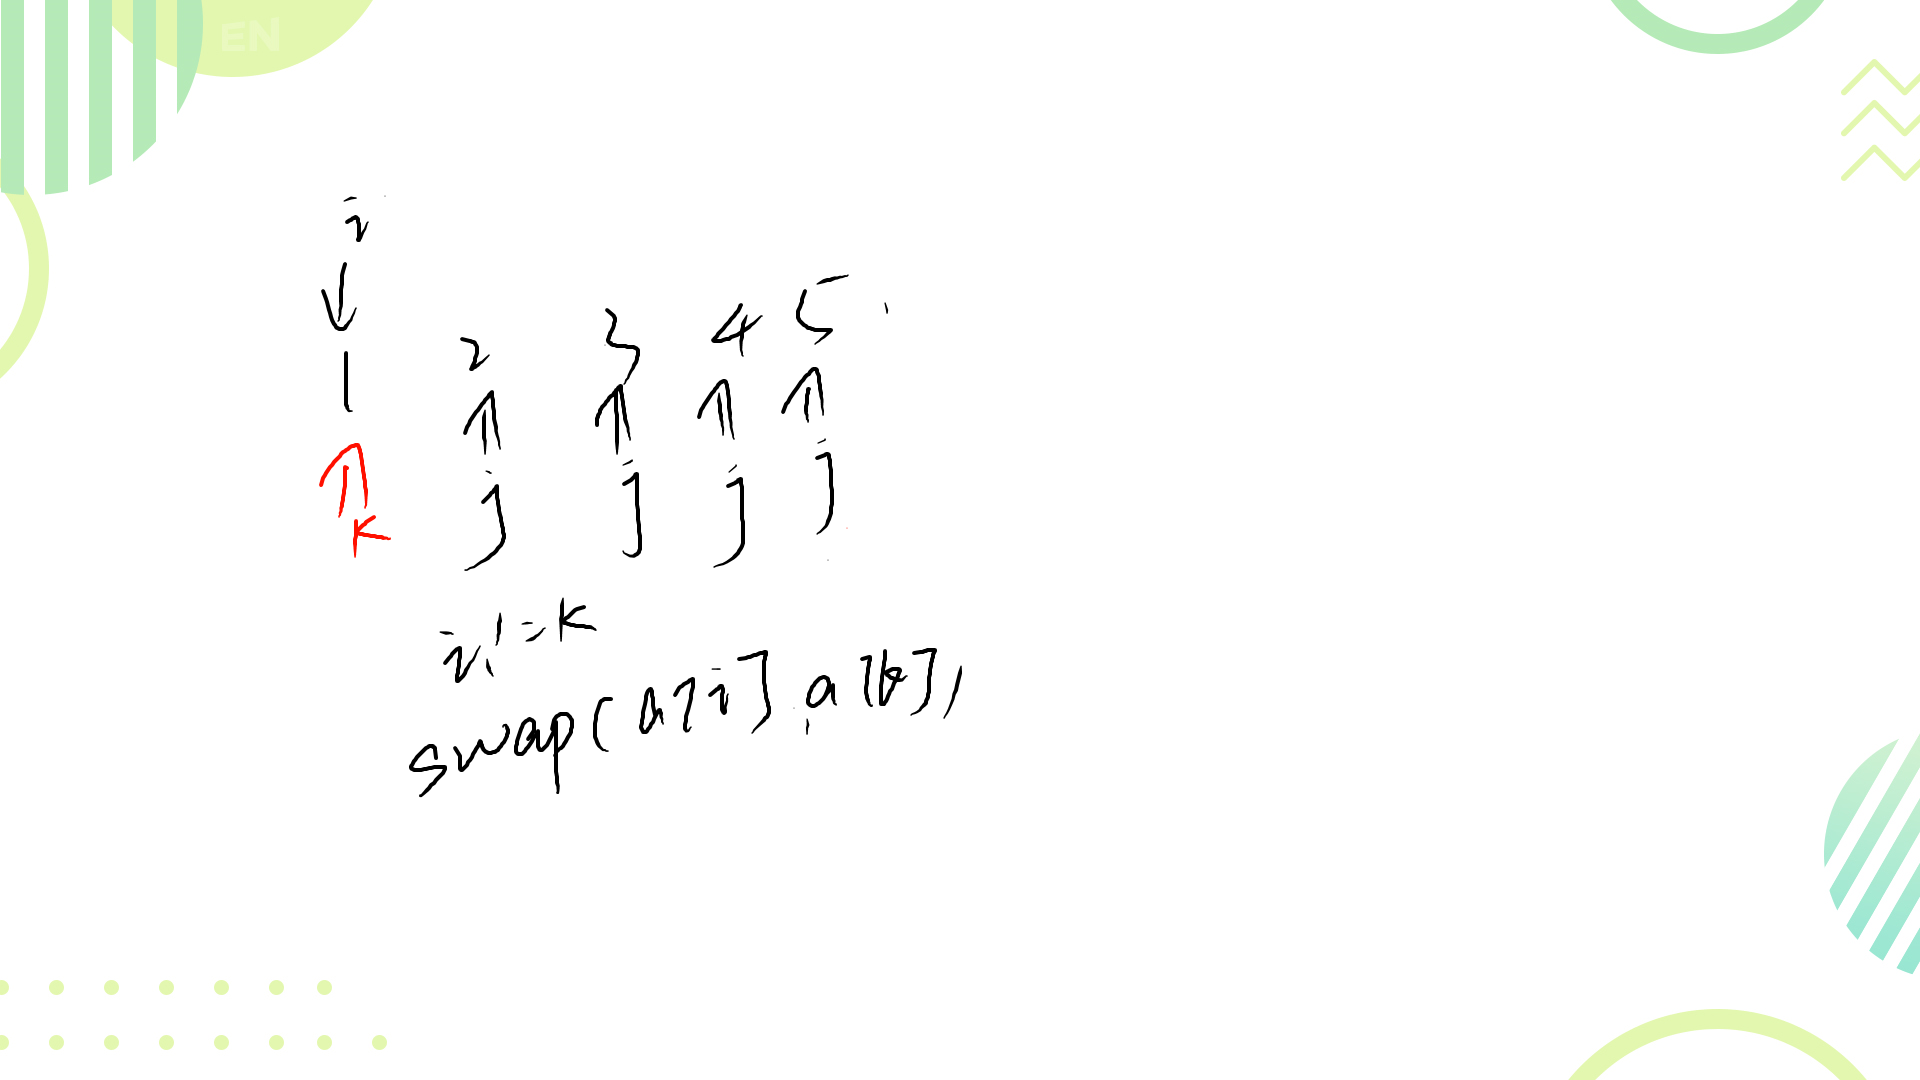 EN
i
1 2 3 4 5
k j j j j
i!=k
swap(a[i],a[k],